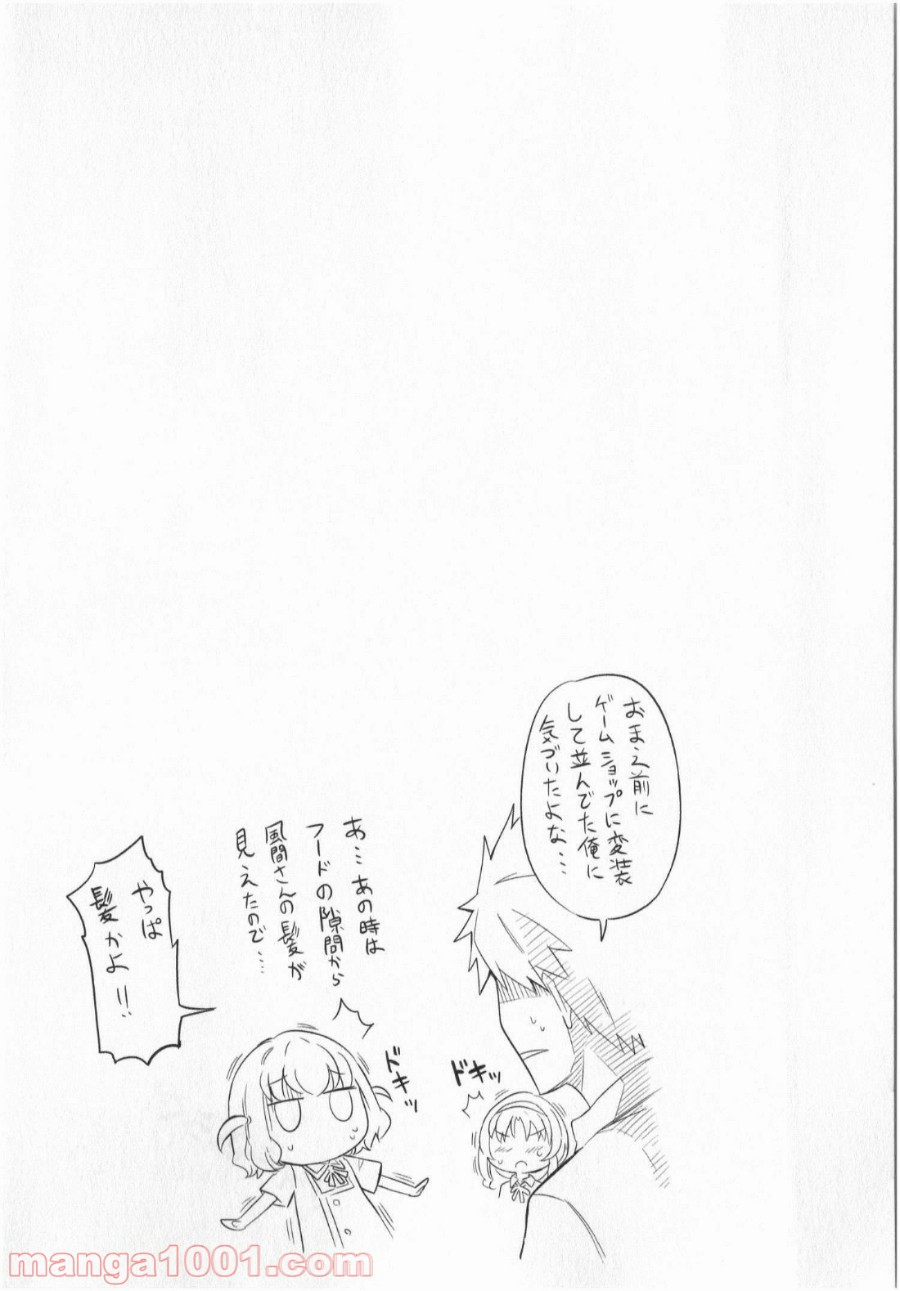 おまえ前に
ゲームショップに変装
して並んでた俺に
気づいたよな…
ドキッ
あ…あの時は
フードの隙間から
風間さんの髪が
見えたので…
ドキッ
やっぱ
髪かよ!!
manga1001.com